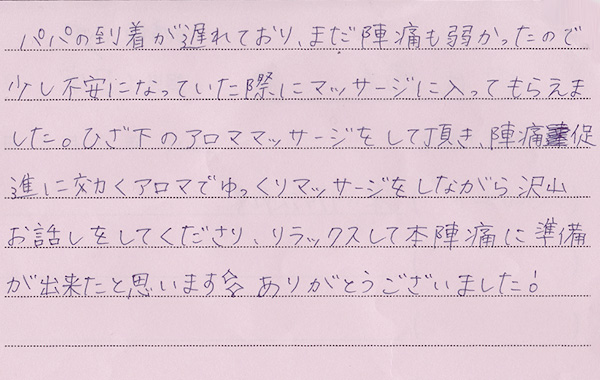 パパの到着が遅れており、まだ陣痛も弱かったので
少し不安になっていた際にマッサージに入ってもらえま
した。ひざ下のアロママッサージをして頂き、陣痛促
進に効くアロマでゆっくりマッサージをしながら沢山
お話しをしてくださり、リラックスして本陣痛に準備
が出来たと思います☆ ありがとうございました!